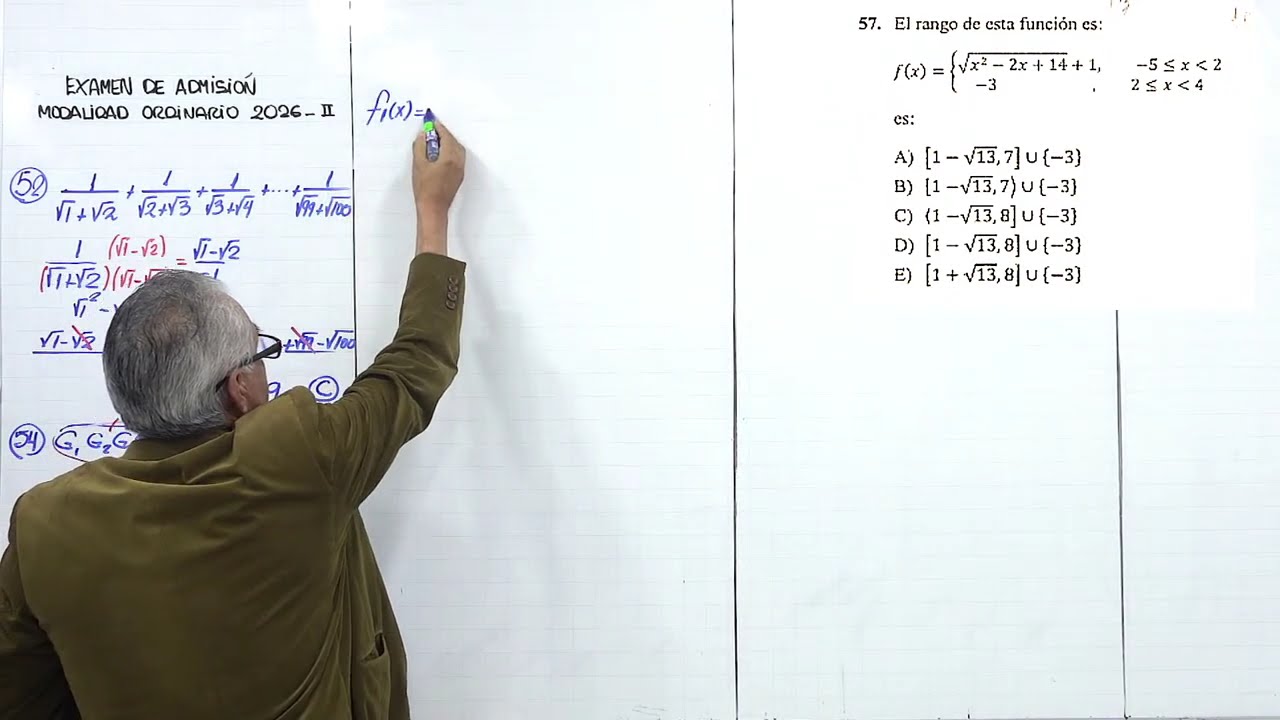 EXAMEN DE ADMISIÓN
MODALIDAD ORDINARIO 2026-II
52 1/(√1+√2) + 1/(√2+√3) + 1/(√3+√4) + ... + 1/(√99+√100)
1/(√1+√2) (√1-√2)/(√1- = (√1-√2)/
√1² -
√1-√2 +√99-√100
9 C
54 G₁ G₂ G
f₁(x)=
57. El rango de esta función es:
f(x) = { √(x² − 2x + 14) + 1, −5 ≤ x < 2
−3 , 2 ≤ x < 4
es:
A) [1 − √13, 7] ∪ {−3}
B) [1 −√13, 7⟩ ∪ {−3}
C) ⟨1 −√13, 8] ∪ {−3}
D) [1 − √13, 8] ∪ {−3}
E) [1 + √13, 8] ∪ {−3}